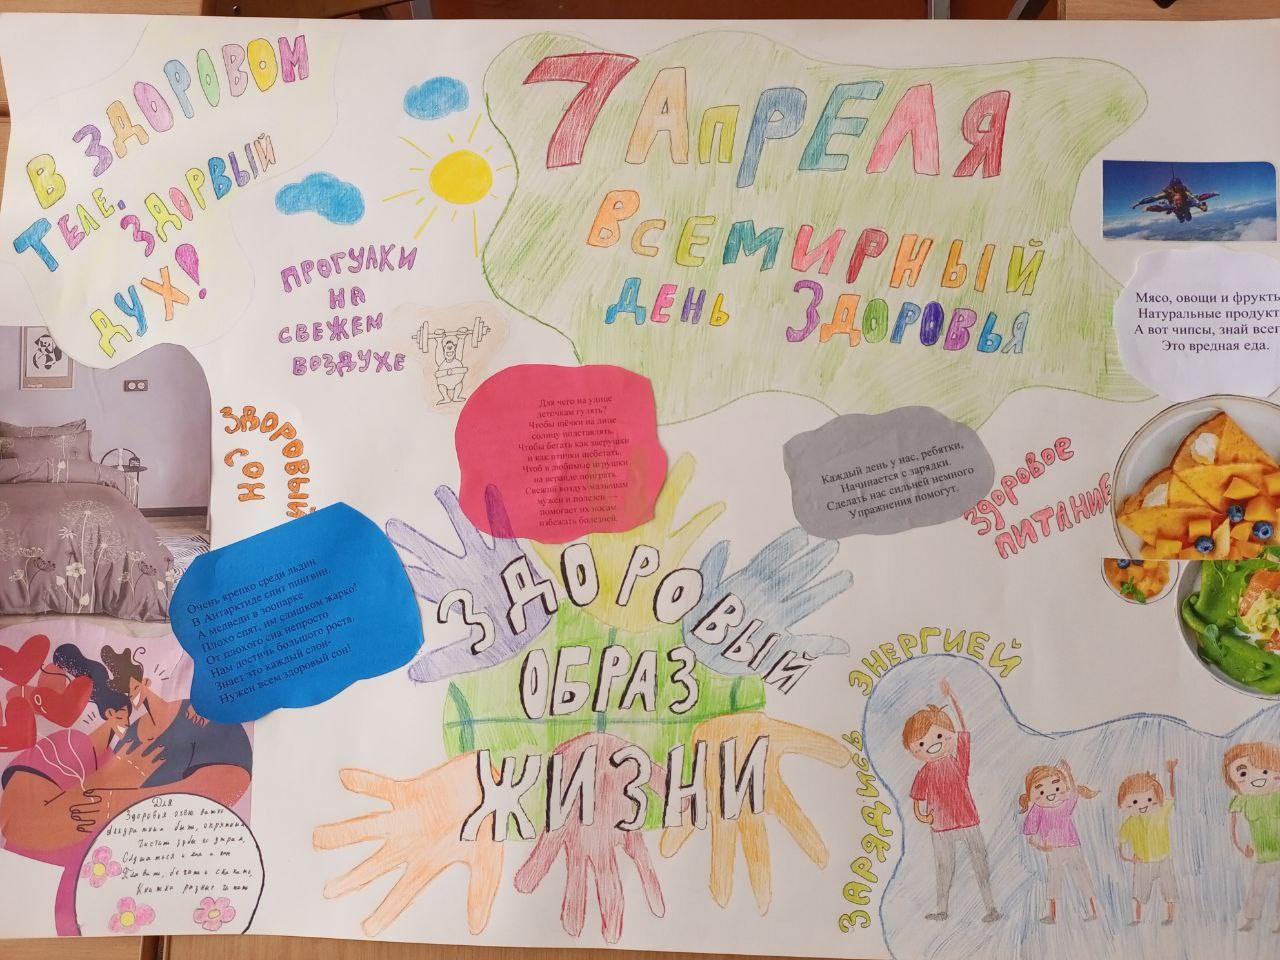 В ЗДОРОВОМ
ТЕЛЕ.
ЗДОРВЫЙ
ДУХ!
7 АПРЕЛЯ
ВСЕМИРНЫЙ
ДЕНЬ ЗДОРОВЬЯ
ПРОГУЛКИ
НА
СВЕЖЕМ
ВОЗДУХЕ
Мясо, овощи и фрукты
Натуральные продукт
А вот чипсы, знай всег
Это вредная еда.
Для чего на улице
деточкам гулять?
Чтобы щёчки на лице
солнцу подставлять.
Чтобы бегать как зверушки
и как птички щебетать.
Чтоб в любимые игрушки
на веранде поиграть.
Свежий воздух малышам
нужен и полезен —
помогает их носам
избежать болезней.
Каждый день у нас, ребятки,
Начинается с зарядки.
Сделать нас сильней немного
Упражнения помогут.
ЗДОРОВЫЙ
СОН
ЗДОРОВОЕ
ПИТАНИЕ
Очень крепко среди льдин
В Антарктиде спит пингвин.
А медведи в зоопарке
Плохо спят, им слишком жарко!
От плохого сна непросто
Нам достичь большого роста.
Знает это каждый слон-
Нужен всем здоровый сон!
ЗДОРОВЫЙ
ОБРАЗ
ЖИЗНИ
ЗАРЯДИСЬ ЭНЕРГИЕЙ
Для
Здоровья очень важно
быть, опрятным
Чистить зубы
Слушаться
бегать
Книжки разные читать